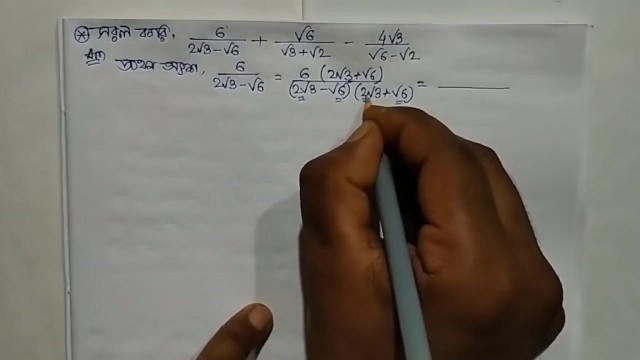 সরল করি. 6/(2√3-√6) + √6/(√3+√2) - 4√3/(√6-√2)
Ans প্রথম অংশ, 6/(2√3-√6) = 6(2√3+√6)/(2√3-√6)(2√3+√6) =